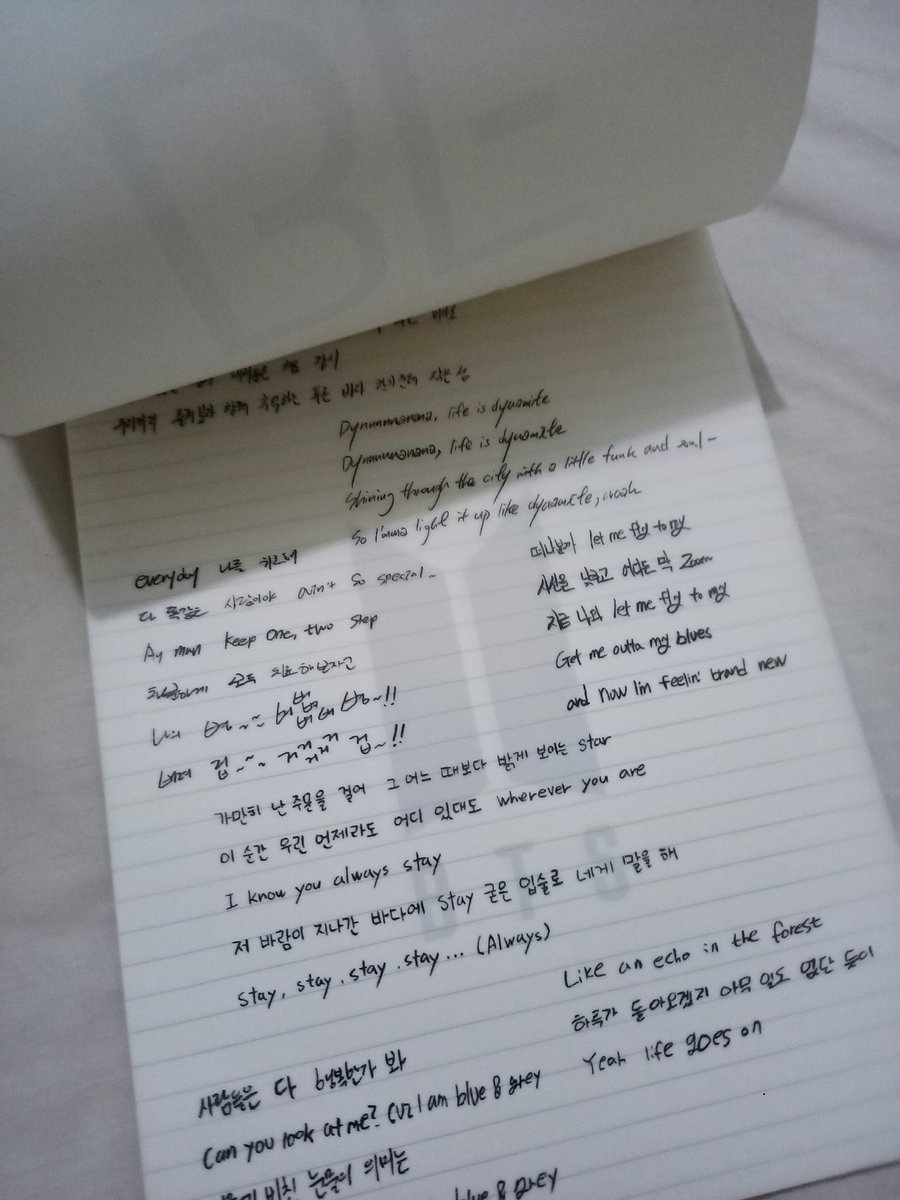 BE
우리끼리 춤추면서 함께 추억하는 푸른 바다 한가운데 작은 섬
Dynnnnnanana, life is dynamite
Dynnnnnanana, life is dynamite
Shining through the city with a little funk and soul-
So I'mma light it up like dynamite, woah
everyday 나를 위로해
다 똑같은 사람이야 ain't so special~
Ay man keep one, two step
차분하게 모두 치료해보자고
나의 병~~~ 벼벼벼벼 병~!!
버려 겁~~~ 거거거거 겁~!!
떠나볼까 let me fly to my
시선을 낮추고 어디든 막 Zoom
지금 나와 let me fly to my
Get me outta my blues
and now I'm feelin' brand new
가만히 난 주문을 걸어 그 어느 때보다 밝게 보이는 star
이 순간 우린 언제라도 어디 있대도 wherever you are
I know you always stay
저 바람이 지나간 바다에 stay 굳은 입술로 네게 말을 해
stay, stay, stay, stay... (Always)
Like an echo in the forest
하루가 돌아오겠지 아무 일도 없단 듯이
Yeah life goes on
사람들은 다 행복한가 봐
Can you look at me? Cuz I am blue & grey
비친 눈물의 의미는
blue & grey
BTS